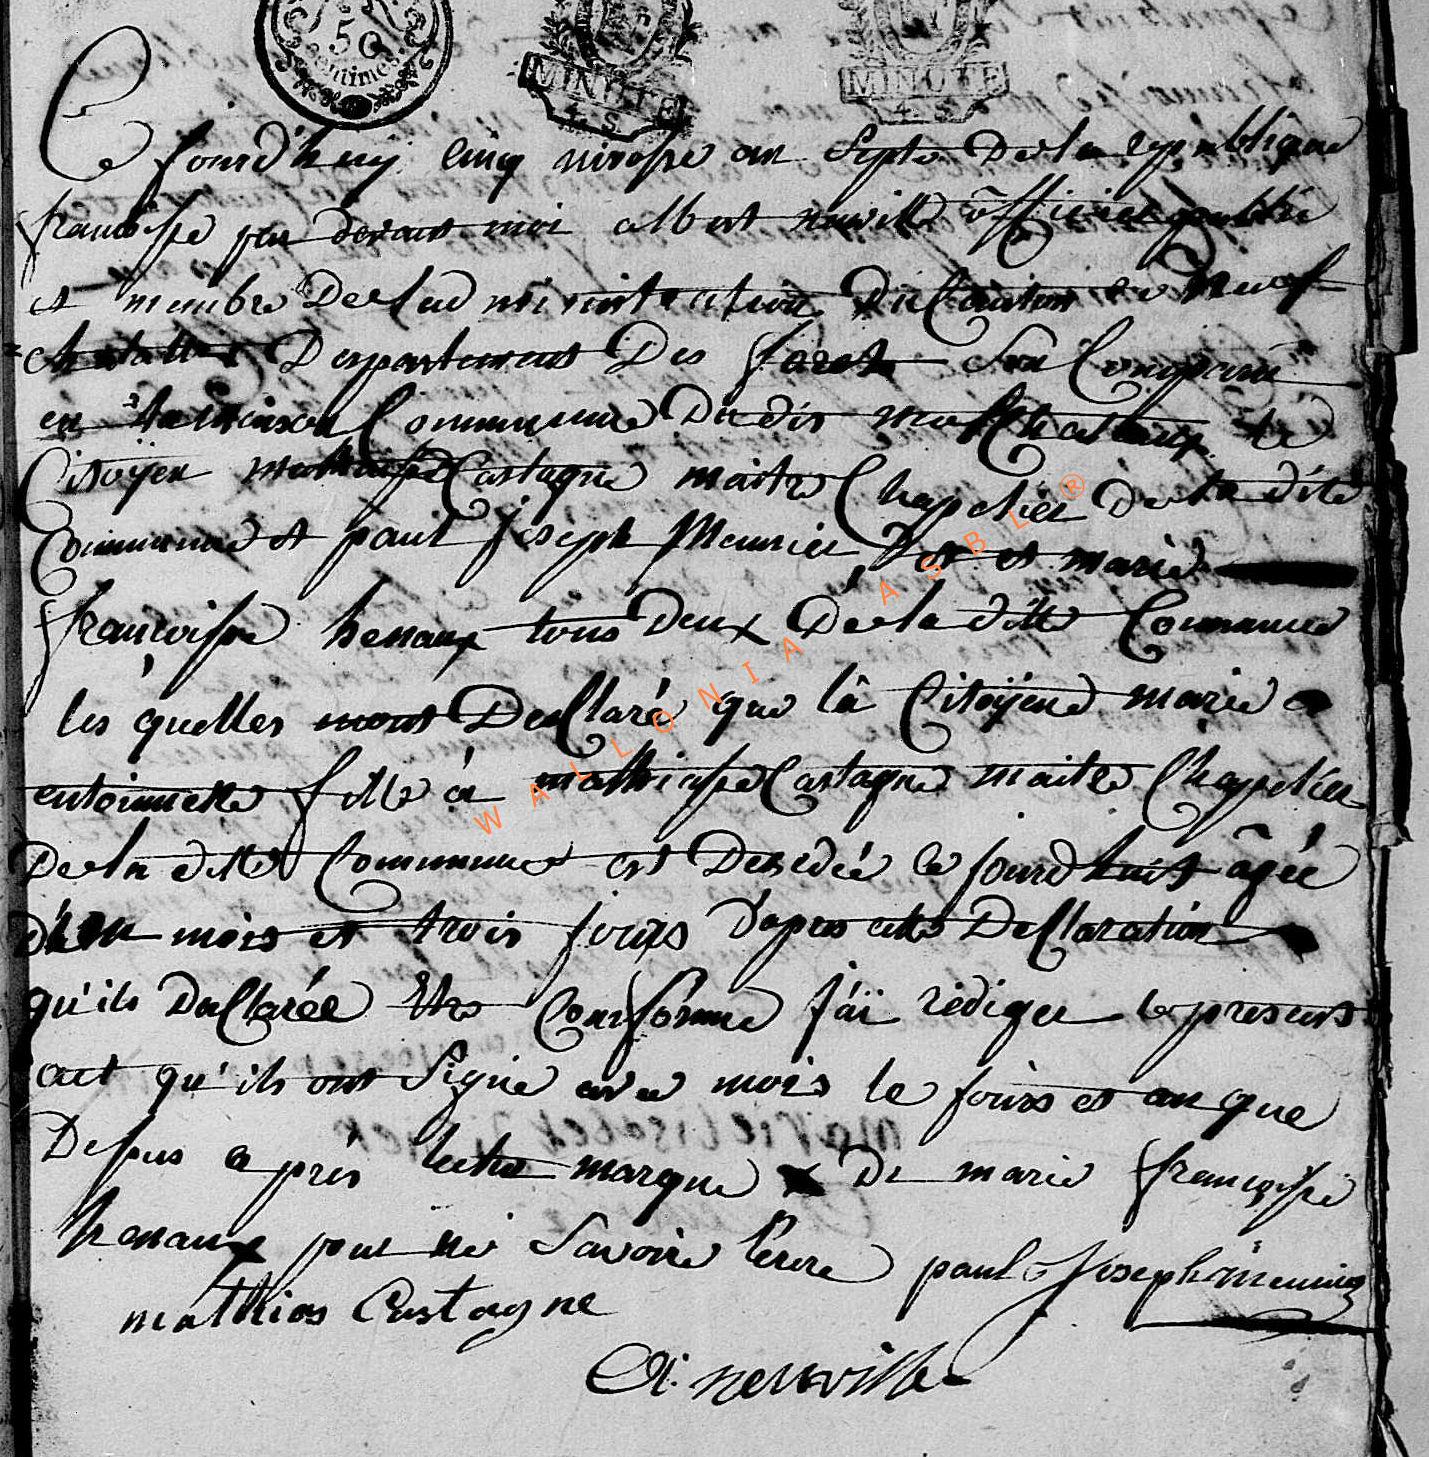 50
centimes
MINUTE MINUTE
4. S. 4. S.
Ce Jourd'huy cinq nivosse an septe De la republique
francoisse par devant moi albert neuville officier publie
et membre De lad ministration Du Canton de Neuf
chatteaux Despartement Des forets son Comparu
en la maison Commune Du dit neufchateaux le
Citoÿen mathiasse Castagne maitre Chapelier De la dite
Commune et paul joseph Meunier et marie
françoisse henaux tous Deux De la ditte Commune
les quelles mont Declaré que la Citoÿene marie
entoinnette fille à mathiasse Castagne maitre Chappelier
De la ditte Commune est Decedée ce jourd huit âgée
D'un mois et trois jours D'apres cette Declaration
qu'ils Declarée Etre Conforme j'ai rédiger le present
act qu'ils ont Signe avec mois le jours et an que
Dessus après lectre marque x De marie françoisse
henaux pour ne Savoire Ecrire paul Joseph meunier
mathias Castagne
A. neuville
WALLONIA ASBL ®